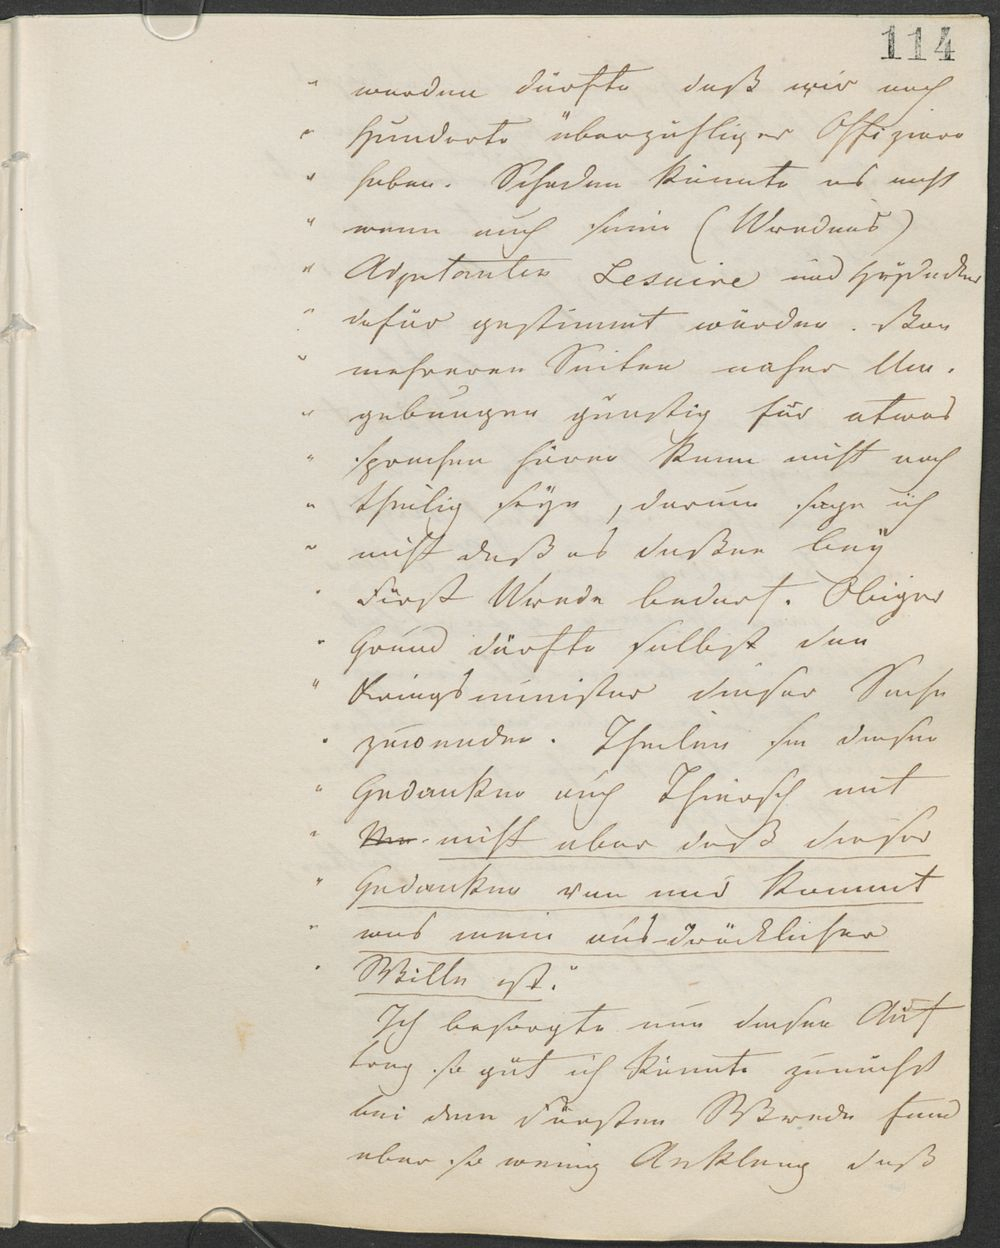 114
" werden dürfte daß wir noch
" Hunderte überzähliger Offiziere
" haben. Schaden könnte es nicht
" wenn auch seine (Wredens)
" Adjutanten Lesuire und Heydecker
" dafür gestimmt würden. Von
" mehreren Seiten naher Um-
" gebungen günstig für etwas
" sprechen hören kann nicht nach
" theilig seyn, darum sage ich
" nicht daß es dessen bey
" Fürst Wrede bedarf. Obiger
" Grund dürfte selbst den
" Kriegsminister dieser Sache
" zuwenden. Theilen sie diesen
" Gedanken auch Thiersch mit
" nicht aber daß dieser
" Gedanken von mir kommt
" was mein ausdrücklicher
" Wille ist."
Ich besorgte nun diesen Auf
trag so gut ich konnte zunächst
bei dem Fürsten Wrede fand
aber so wenig Anklang daß